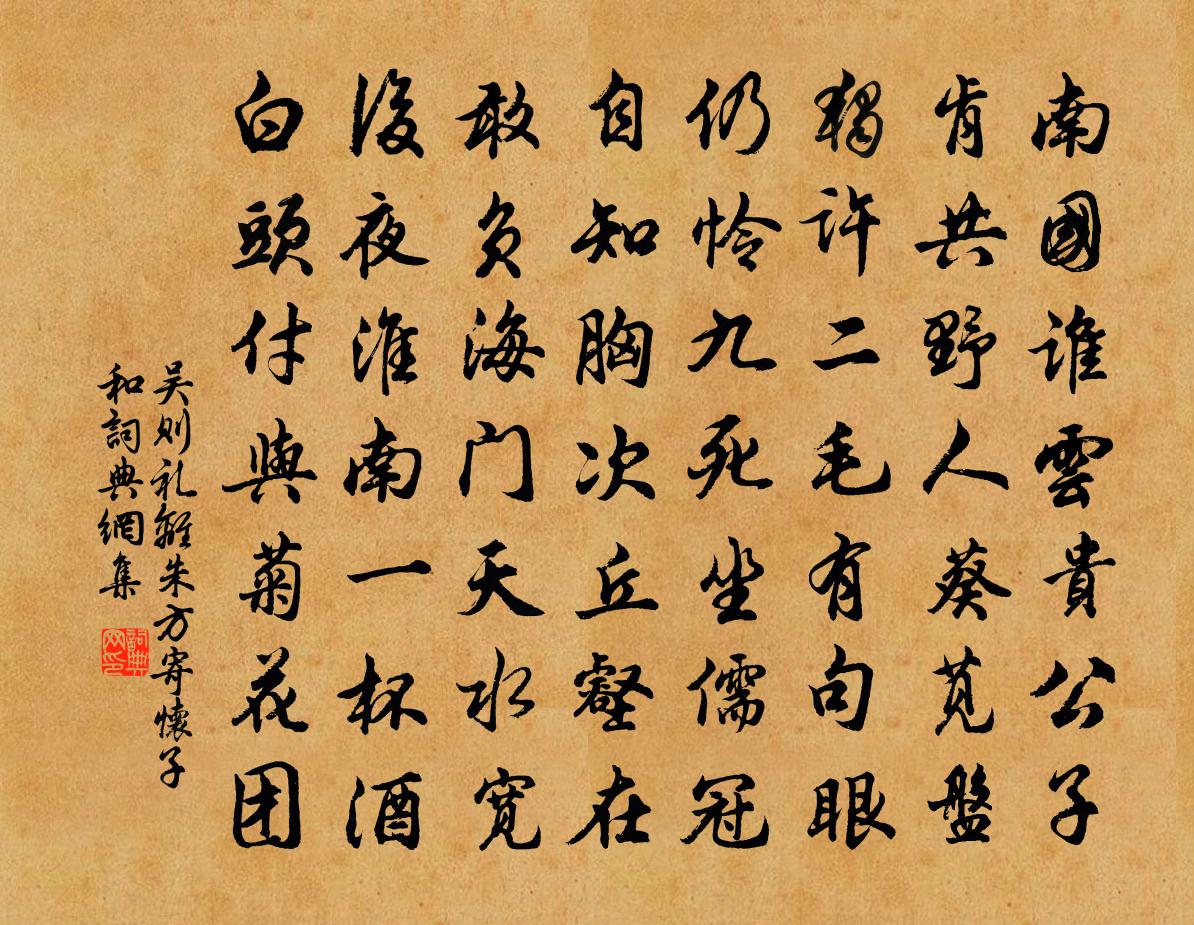 南國誰雲貴公子
肯共野人葵莧盤
獨許二毛有句眼
仍憐九死坐儒冠
自知胸次丘壑在
敢負海门天水寬
後夜淮南一杯酒
白頭付與菊花团
吴则礼離朱方寄懷子
和詞典網集
詞典网印